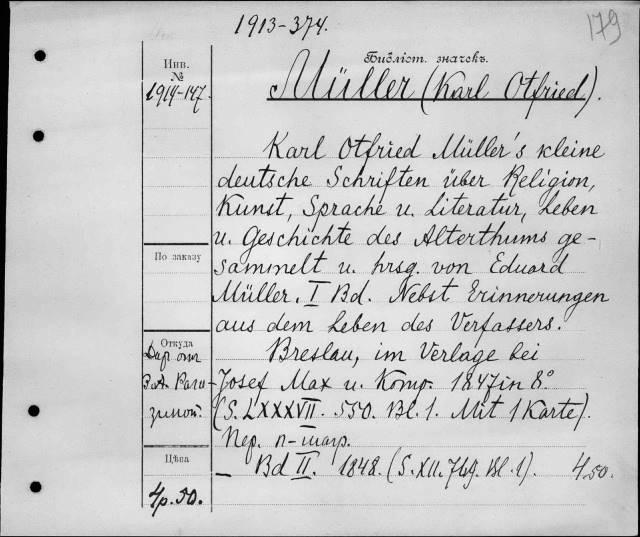 1913-374.
179
Библіот. значекъ.
Müller (Karl Otfried).
Инв.
№
1914-147.
Karl Otfried Müller's kleine
deutsche Schriften über Religion,
Kunst, Sprache u. Literatur, Leben
u. Geschichte des Alterthums ge-
sammelt u. hrsg. von Eduard
Müller. I Bd. Nebst Erinnerungen
aus dem Leben des Verfassers.
Breslau, im Verlage bei
Josef Max u. Komp. 1847 in 8°
(S. LXXXVII. 550. Bl. 1. Mit 1 Karte).
Пер. п-шагр.
— Bd II. 1848. (S. XII. 749. Bl. 1). 4.50.
По заказу
Откуда
Даръ от
Раго-
зиной.
Цѣна
4р. 50.